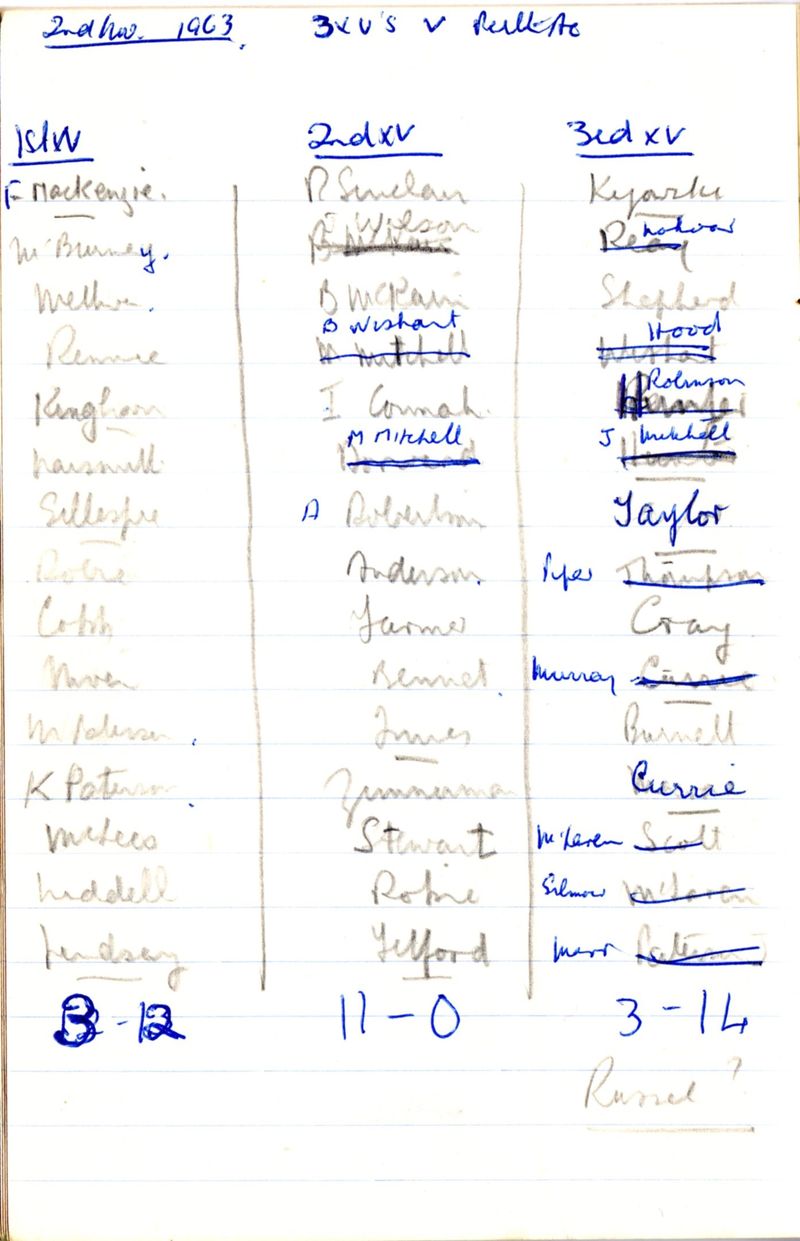 2nd Nov. 1963 3XV'S V
1st XV
F Mackenzie.
McBurney.
Methven.
Rennie
Kinghorn
Naismith
Gillespie
Robie
Cobb
Niven
K Paterson
McLees
Liddell
Lindsay
3 - 12
2nd XV
P Sinclair
Wilson
B McKain
B McKain
B Wishart
M Mitchell
I Connah.
M Mitchell
A Robertson
Anderson.
Farmer
Bennet
Innes
Zimmerman
Stewart
Robie
Telford
11 - 0
3rd XV
Reay
Shepherd
Hood
Wishart
Robinson
Hunter
J Mitchell
Taylor
Piper Thompson
Gray
Murray Currie
Burnell
Currie
McLaren Scott
Gilmour McLaren
Marr Paterson
3 - 14
Russel ?